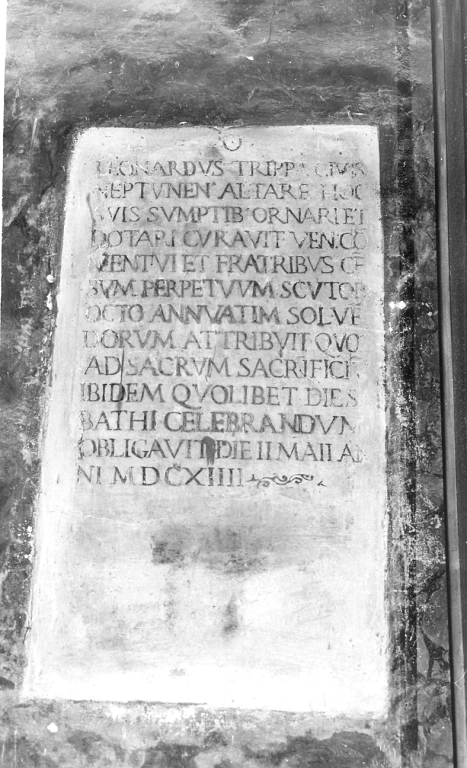 LEONARDVS TRIPPA CIVIS
NEPTVNEN' ALTARE HOC
SVIS SVMPTIB' ORNARI ET
DOTARI CVRAVIT VEN. CO
VENTVI ET FRATRIBVS CE
SVM PERPETVVM SCVTOR
OCTO ANNVATIM SOLVE
DORVM ATTRIBVIT QVO
AD SACRVM SACRIFICI
IBIDEM QVOLIBET DIE S
BATHI CELEBRANDVM
OBLIGAVIT DIE II MAII A
NI MDCXIIII